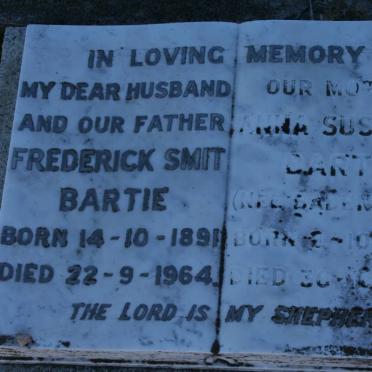 IN LOVING MEMORY
MY DEAR HUSBAND
AND OUR FATHER
FREDERICK SMIT
BARTIE
BORN 14-10-1891
DIED 22-9-1964.
OUR MOT
ANNA SUS
BART
BORN
DIED
THE LORD IS MY SHEPHE